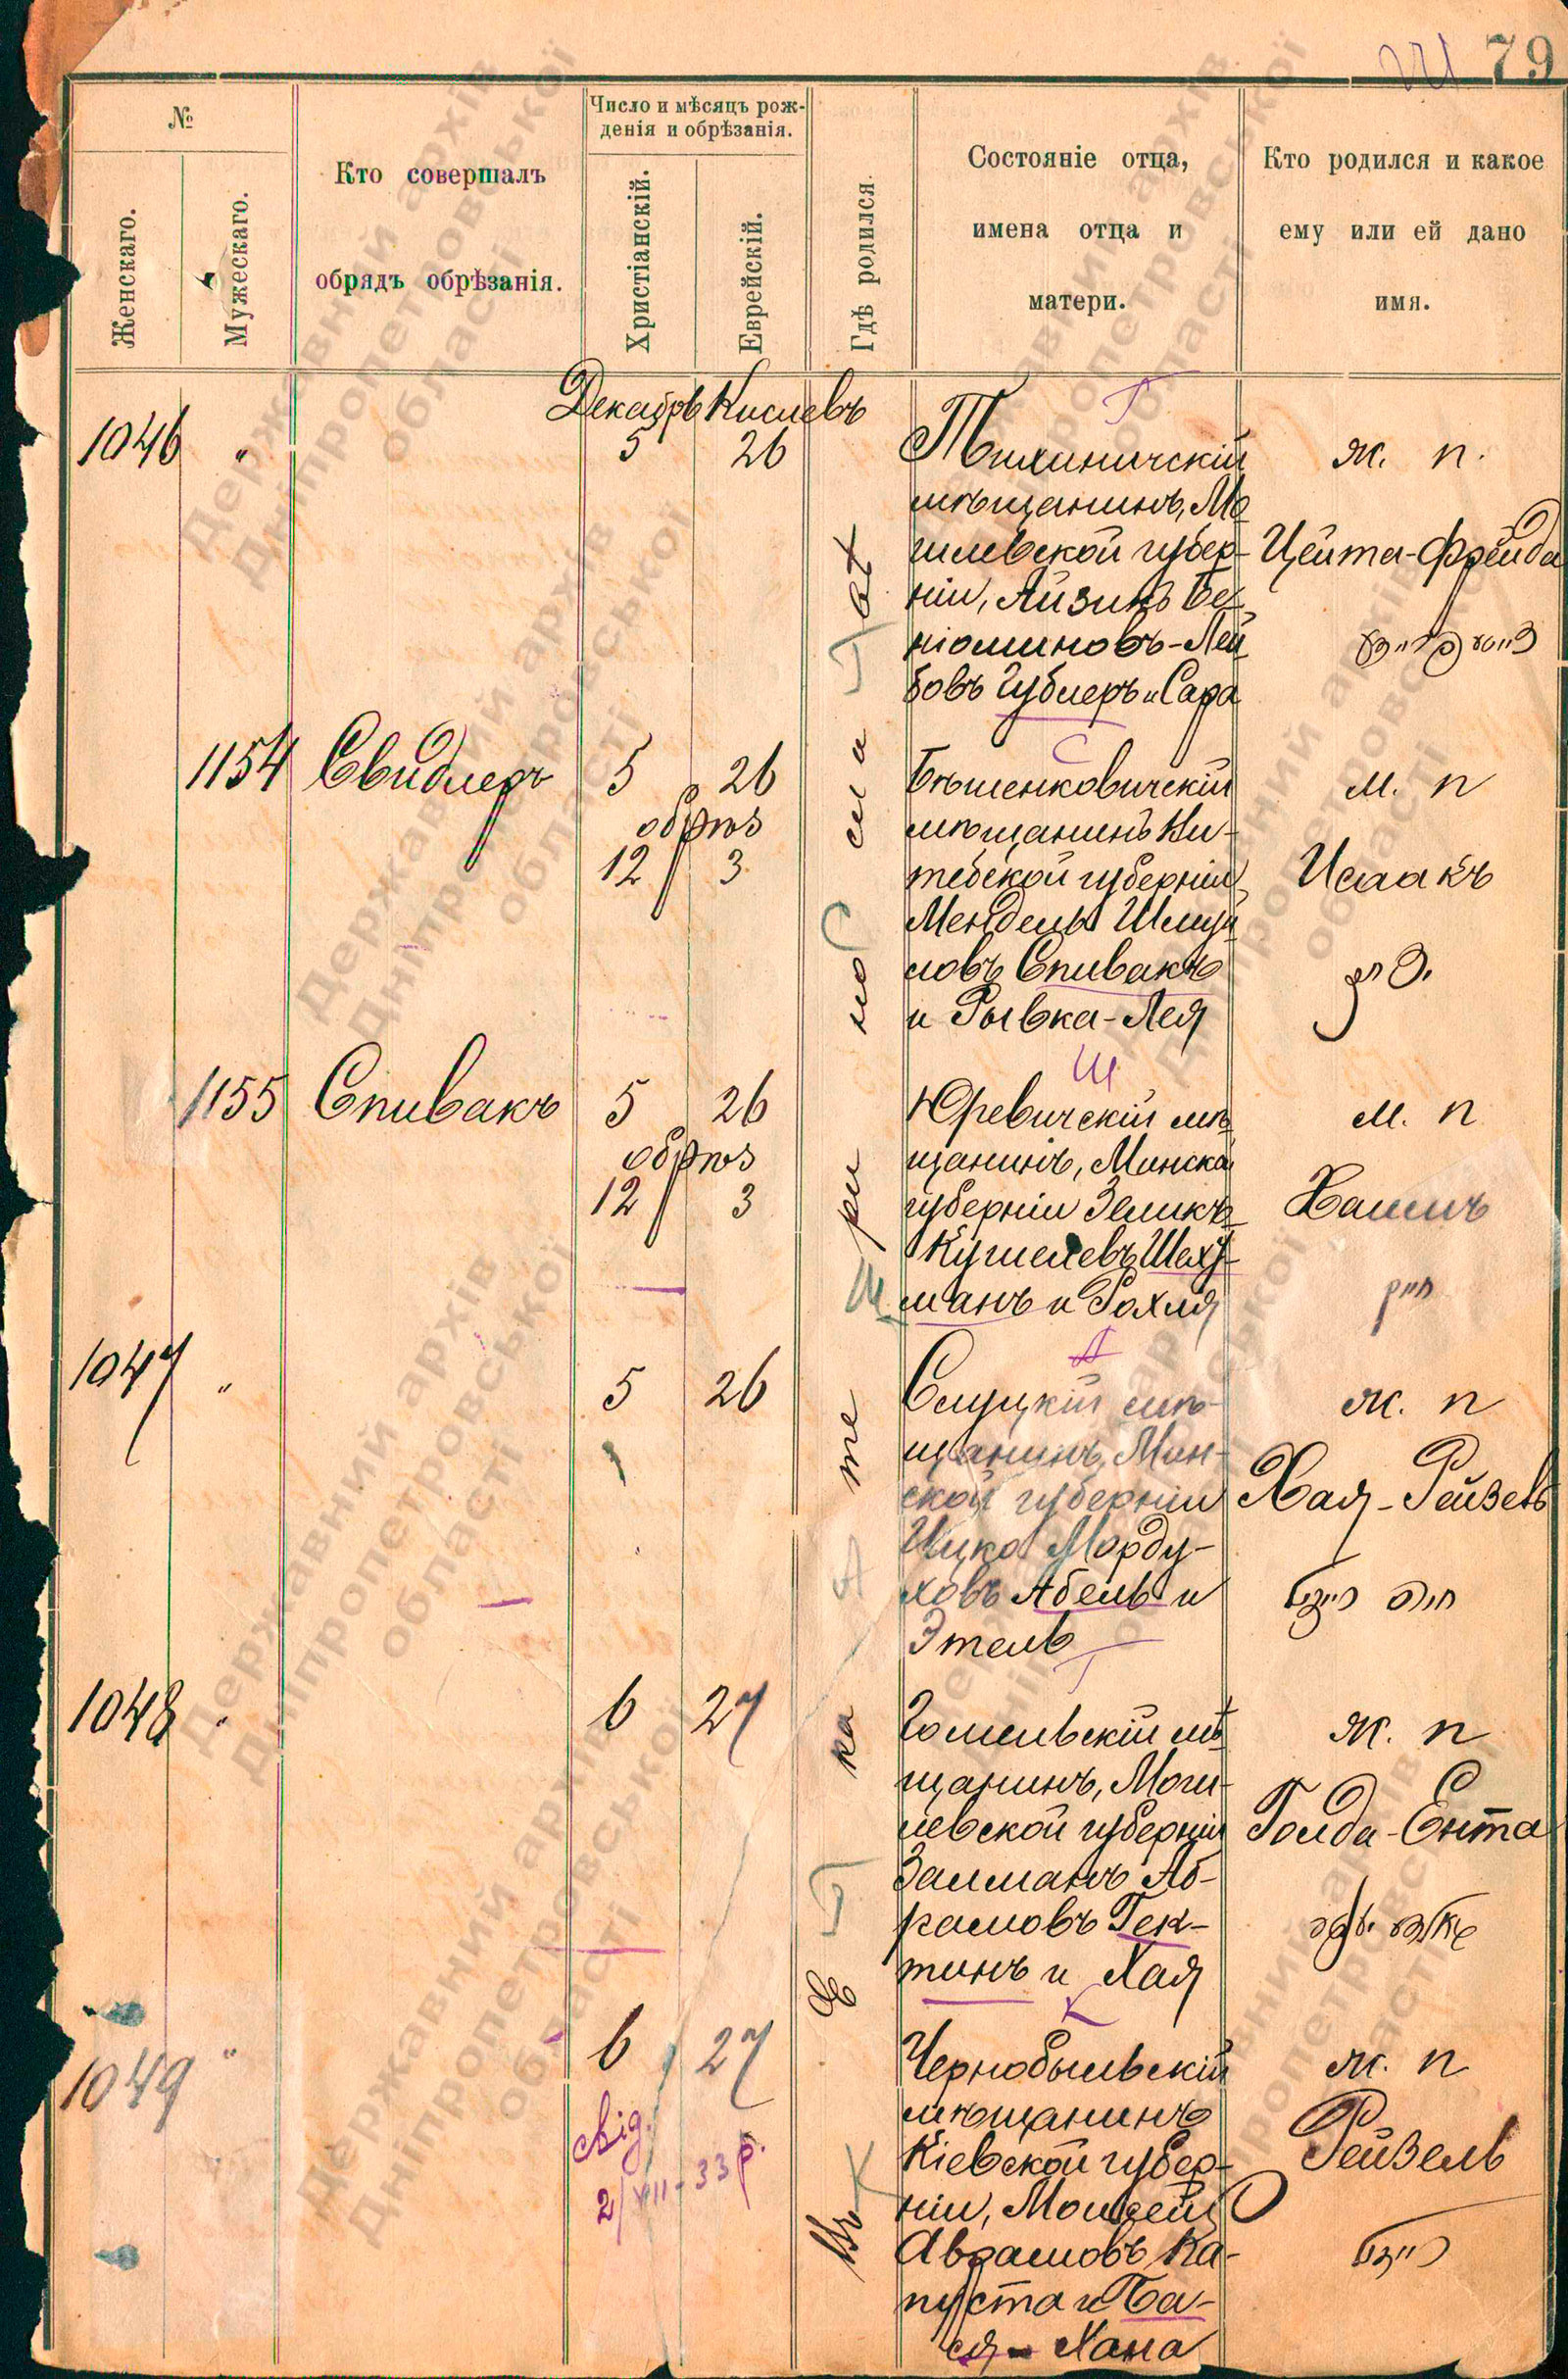 79
№
Женскаго.
Мужескаго.
Кто совершалъ
обрядъ обрѣзанія.
Число и мѣсяцъ рож-
денія и обрѣзанія.
Христіанскій.
Еврейскій.
Гдѣ родился.
Состояніе отца,
имена отца и
матери.
Кто родился и какое
ему или ей дано
имя.
Декабрь Кислевъ
Въ Екатеринославѣ
1046 " 5 26
Г
мѣщанинъ, Мо-
гилевской губер-
ніи, Айзикъ Бе-
ніоминовъ-Лей-
бовъ Гублеръ и Сара
ж. п.
Цейта-Фрейда
1154 Свидлеръ 5 26
обрѣз
12 3
С
Бѣшенковичскій
мѣщанинъ Ви-
тебской губерніи
Мендель Шмуй-
ловъ Спивакъ
и Рывка-Лея
м. п
Исаакъ
1155 Спивакъ 5 26
обрѣз
12 3
Ш
Юревичскій мѣ-
щанинъ, Минской
губерніи Зеликъ-
Кушелевъ Шех-
манъ и Рохля
м. п
Хаимъ
חיים
1047 " 5 26
А
Слуцкій мѣ-
щанинъ, Мин-
ской губерніи
Ицко Морду-
ховъ Абель и
Этель
ж. п
Хая-Рейзель
חיה רייזל
1048 " 6 27
Г
Гомельскій мѣ-
щанинъ, Моги-
левской губерніи
Залманъ Аб-
рамовъ Гек-
тинъ и Хая
ж. п
Голда-Ента
1049 " 6 27
свід.
2/VII-33 р.
К
Чернобыльскій
мѣщанинъ
Кіевской губер-
ніи, Мошсей
Аврамовъ Ка-
пуста и Ба-
ся-Хана
ж. п
Рейзель
רייזל
Державний архів
Дніпропетровської
області